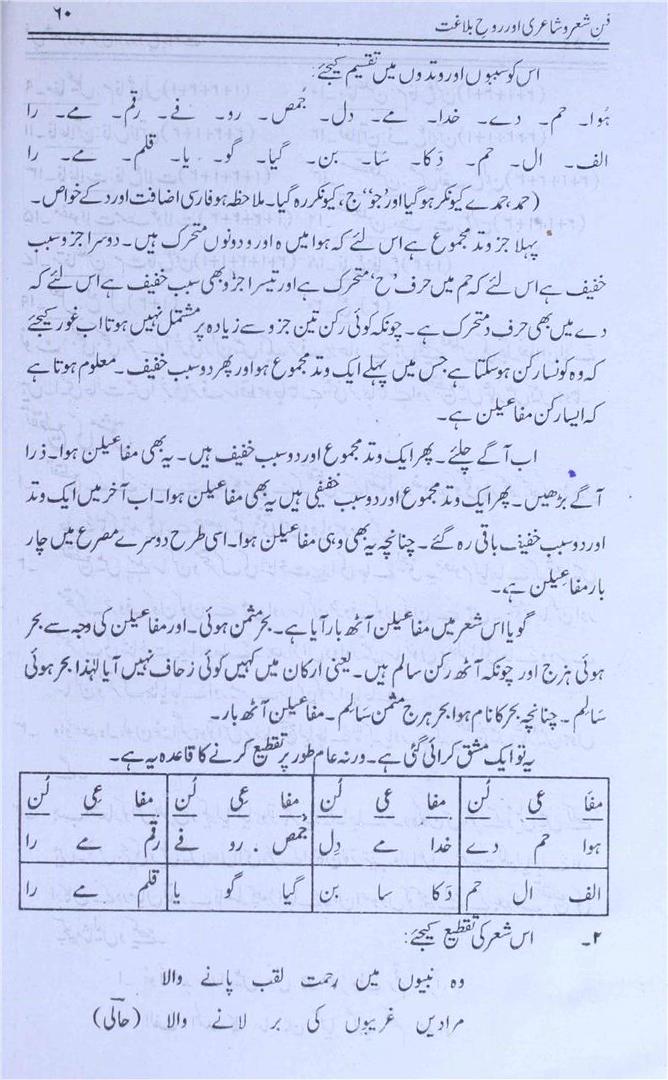 فن شعر و شاعری اور روح بلاغت
۶۰
اس کو سببوں اور وتدوں میں تقسیم کیجئے:
ہُوا۔ حم۔ دے۔ خدا۔ مے۔ دِل۔ جُمص۔ رو۔ فے۔ رقم۔ مے۔ را
الف۔ ال۔ حم۔ دَکا۔ سَا۔ بن۔ گیا۔ گو۔ یا۔ قلم۔ مے۔ را
(حمد، حمدے کیونکر ہوگیا اور ’جو‘ ’ج‘، کیونکر رہ گیا۔ ملاحظہ ہو فارسی اضافت اور د کے خواص۔
پہلا جزو وتد مجموع ہے اس لئے کہ ہوا میں ہ اور و دونوں متحرک ہیں۔ دوسرا جزو سبب
خفیف ہے اس لئے کہ حم میں حرف ’ح‘ متحرک ہے اور تیسرا جزو بھی سبب خفیف ہے اس لئے کہ
دے میں بھی حرف د متحرک ہے۔ چونکہ کوئی رکن تین جزو سے زیادہ پر مشتمل نہیں ہوتا اب غور کیجئے
کہ وہ کونسا رکن ہوسکتا ہے جس میں پہلے ایک وتد مجموع ہو اور پھر دو سبب خفیف۔ معلوم ہوتا ہے
کہ ایسا رکن مفاعیلن ہے۔
اب آگے چلئے۔ پھر ایک وتد مجموع اور دو سبب خفیف ہیں۔ یہ بھی مفاعیلن ہوا۔ ذرا
آگے بڑھیں۔ پھر ایک وتد مجموع اور دو سبب خفیفی ہیں یہ بھی مفاعیلن ہوا۔ اب آخر میں ایک وتد
اور دو سبب خفیف باقی رہ گئے۔ چنانچہ یہ بھی وہی مفاعیلن ہوا۔ اسی طرح دوسرے مصرع میں چار
بار مفاعیلن ہے۔
گویا اس شعر میں مفاعیلن آٹھ بار آیا ہے۔ بحر مثمن ہوئی۔ اور مفاعیلن کی وجہ سے بحر
ہوئی ہزج اور چونکہ آٹھ رکن سالم ہیں۔ یعنی ارکان میں کہیں کوئی زحاف نہیں آیا لہٰذا بحر ہوئی
سَالم۔ چنانچہ بحر کا نام ہوا بحر ہزج مثمن سَالم۔ مفاعیلن آٹھ بار۔
یہ تو ایک مشق کرائی گئی ہے۔ ورنہ عام طور پر تقطیع کرنے کا قاعدہ یہ ہے۔
مفَا عی لُن مفا عی لُن مفا عی لُن مفا عِی لُن
ہوا حم دے خدا مے دِل جُمص۔ رو فے رقم مے را
الف ال حم دَکا سا بن گیا گو یا قلم مے را
۲۔ اس شعر کی تقطیع کیجئے:
وہ نبیوں میں رحمت لقب پانے والا
مرادیں غریبوں کی بر لانے والا (حالی)